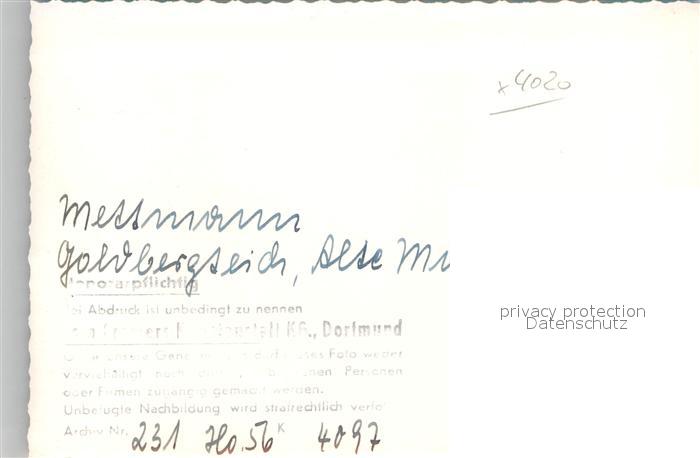 x 4020
Mettmann
Goldbergteich, Alte
Honorarpflichtig
Bei Abdruck ist unbedingt zu nennen
KG., Dortmund
Ohne unsere dieses Foto weder
vervielfältigt noch Personen
oder Firmen zugängig gemacht werden.
Unbefugte Nachbildung wird strafrechtlich
Archiv Nr. 231 Ho.56 K 4097
privacy protection
Datenschutz